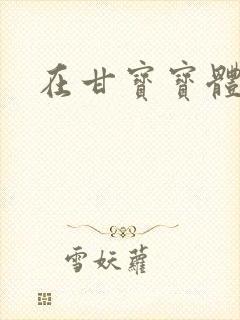 在甘寶寶體
雪妖蘿